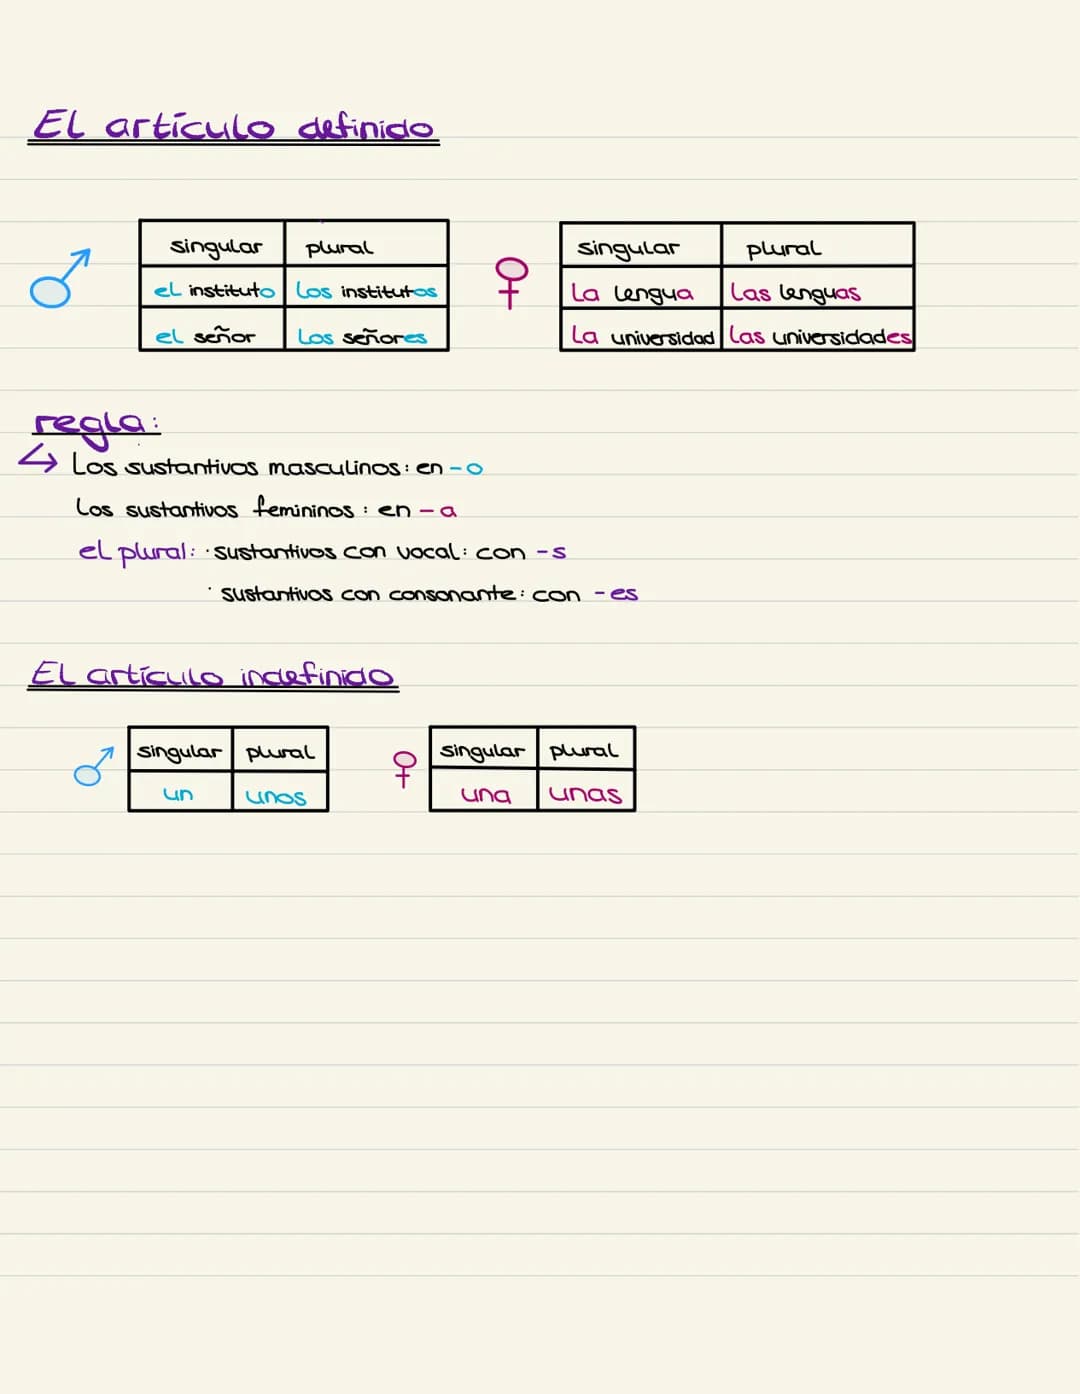 El artículo definido
singular plural
el instituto los institutos
el señor los señores
singular plural
la lengua las lenguas
la universidad las universidades
regla:
↳ Los sustantivos masculinos: en -o
Los sustantivos femininos: en -a
el plural: · sustantivos con vocal: con -s
· sustantivos con consonante: con -es
El artículo indefinido
singular plural
un unos
singular plural
una unas